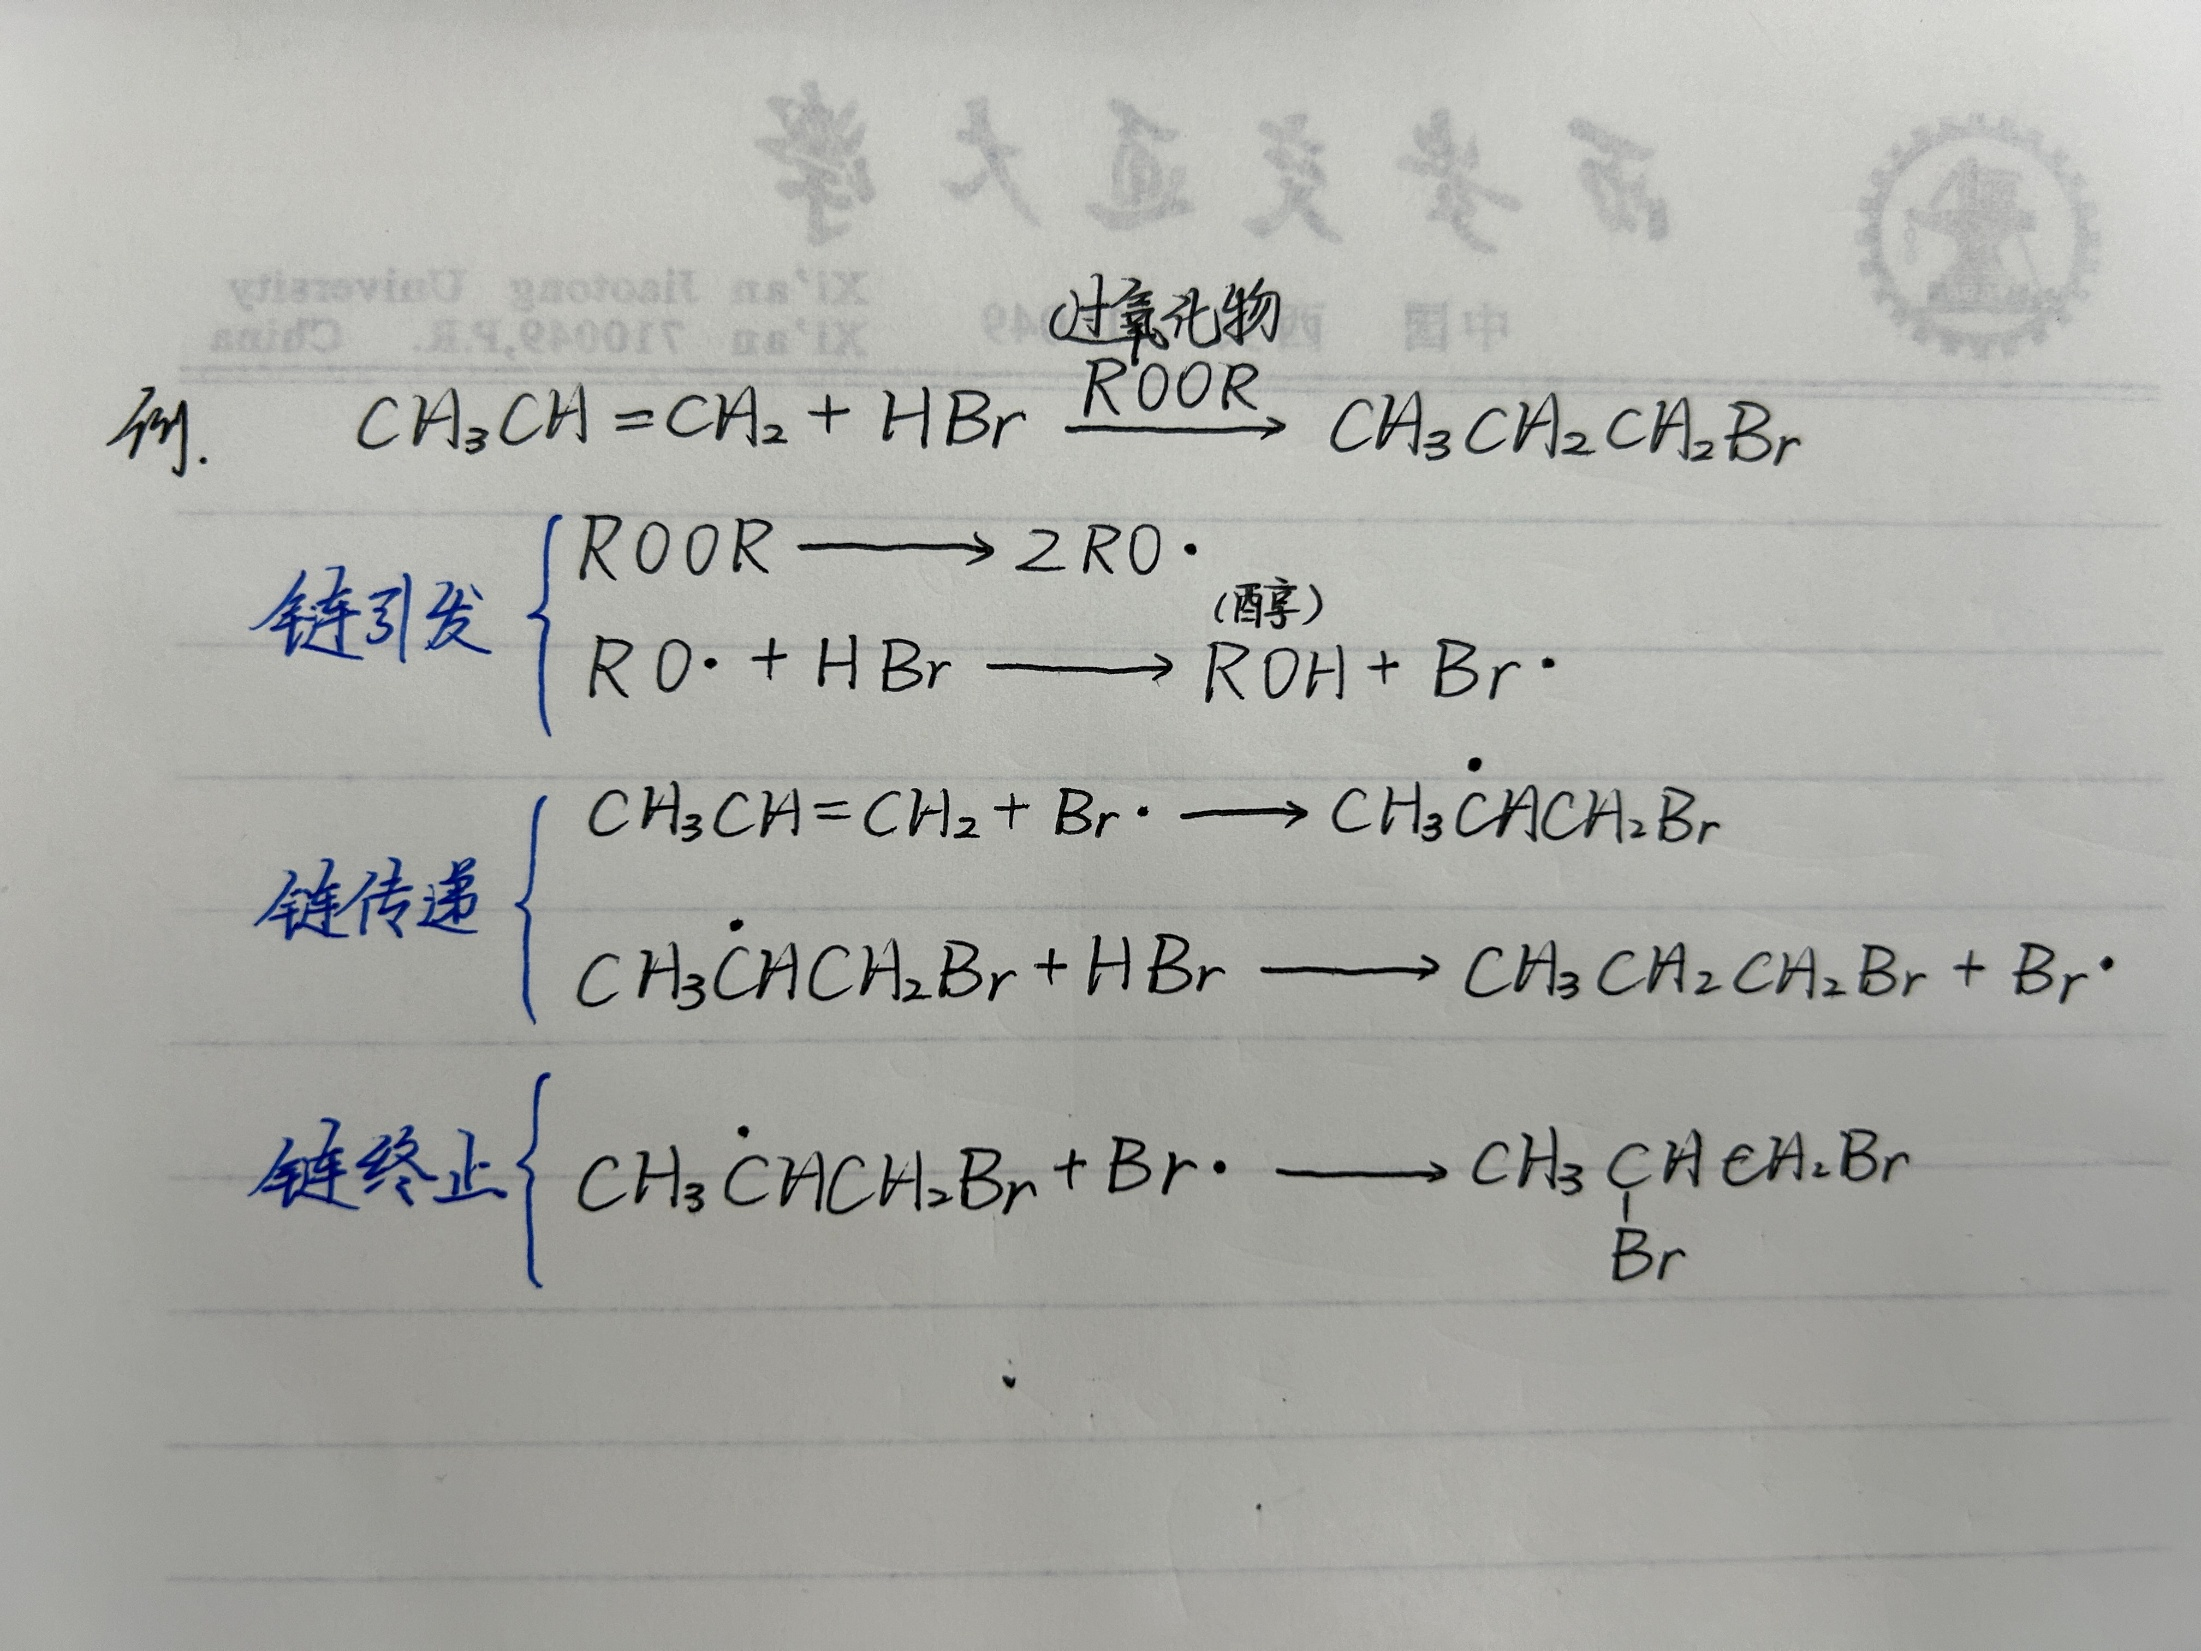 西安交通大学
Xi'an Jiaotong University
Xi'an 710049,P.R. China
中国 西 049
过氧化物
ROOR
例. CH₃CH=CH₂ + HBr ⟶ CH₃CH₂CH₂Br
链引发
ROOR ⟶ 2RO·
(醇)
RO· + HBr ⟶ ROH + Br·
链传递
CH₃CH=CH₂ + Br· ⟶ CH₃ĊHCH₂Br
CH₃ĊHCH₂Br + HBr ⟶ CH₃CH₂CH₂Br + Br·
链终止
CH₃ĊHCH₂Br + Br· ⟶ CH₃CHCH₂Br
Br